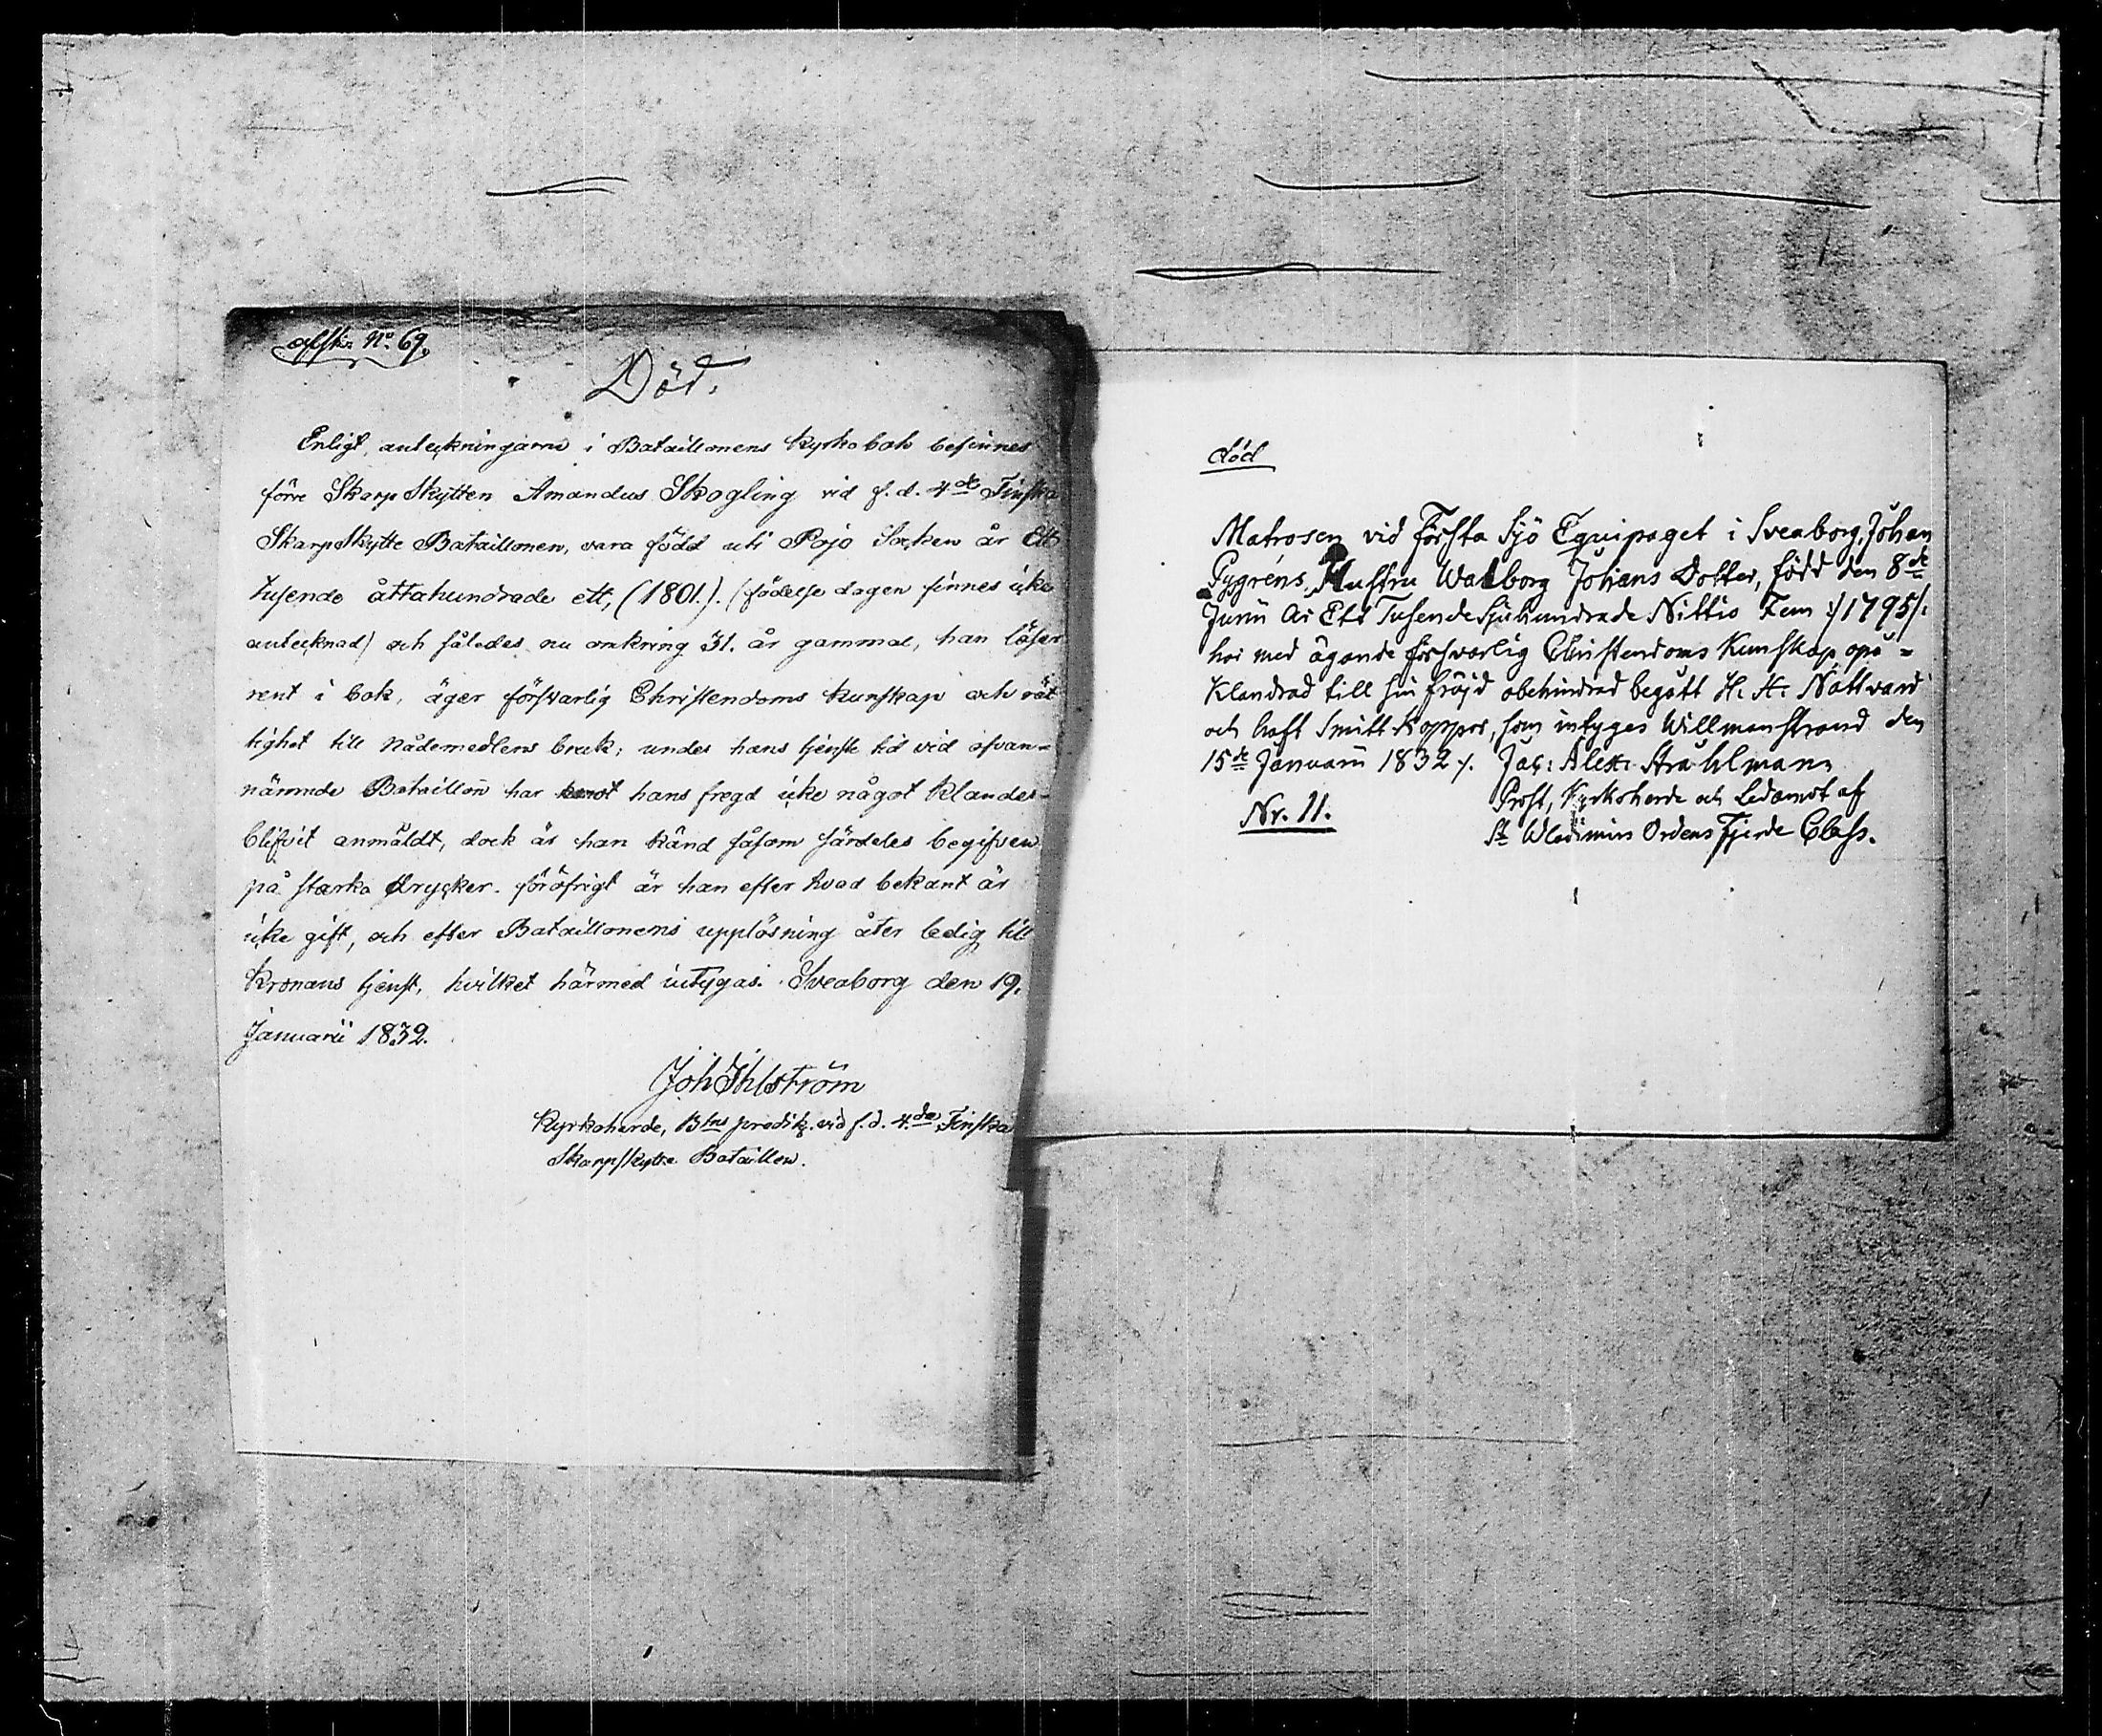 afsk. No. 69.
Död.
Enligt anteckningarne i Bataillonens kyrkobok befinnes
förre SkarpSkytten Amandus Skogling vid f. d. 4de Finska
SkarpSkytte Bataillonen, vara född uti Pojo Socken år Ett
tusende åttahundrade ett, (1801.). (födelse dagen finnes icke
antecknad) och således nu omkring 31. år gammal, han läser
rent i bok, äger försvarlig Christendoms kunskap och rät
tighet till nådemedlens bruk; under hans tjenste tid vid ofvan-
nämnde Bataillon har emot hans fregd icke något klander
blifvit anmäldt, dock är han känd såsom särdeles begifven
på starka drycker. föröfrigt är han efter hvad bekant är
icke gift, och efter Bataillonens upplösning åter ledig till
Kronans tjenst, hvilket härmed intygas. Sveaborg den 19.
Januarii 1832.
Joh Ihlström
Kyrkoherde, Btns predik. vid f. d. 4.de Finska
Skarpskytte Bataillon.
död
Matrosen vid Första Sjö Equipaget i Sveaborg, Johan
Pygréns Hustru Walborg Johans Dotter, född den 8de
Junii År Ett Tusende Sjuhundrade Nittio Fem :/1795/:
har med ägande försvarlig Christendoms Kunskap, opå-
Klandrad till sin fräjd obehindrad begått H. H. Nattvard
och haft Smitt Koppor, som intyges Willmanstrand den
15de Januarii 1832 /. Jac: Alex: Stråhlman
Prost, Kyrkoherde och Ledamot af
St Wladimirs Ordens Fjerde Class.
Nr. 11.